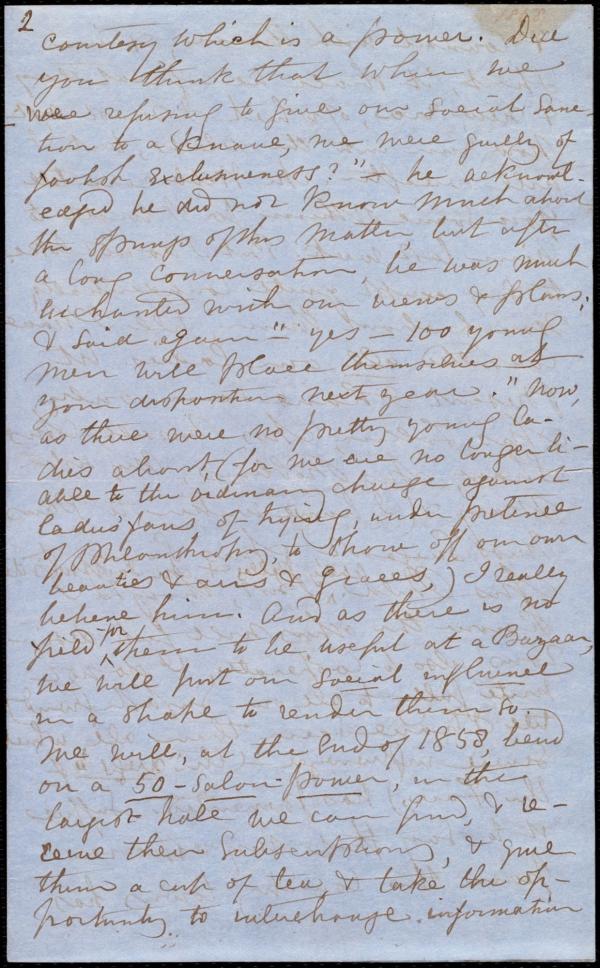 2
courtesy which is a power. Did
you think that when we
were refusing to give our social sanc-
tion to a knave, we were guilty of
foolish exclusiveness?" — he acknowl-
edged he did not know much about
the springs of this matter, but after
a long conversation, he was much
enchanted with our views & plans;
& said again "yes — 100 young
men will place themselves at
your disposition next year." Now,
as there were no pretty young la-
dies about, (for we are no longer li-
able to the ordinary charge against
ladies' fairs of trying, under pretence
of philanthropy, to show off our own
beauties & airs & graces,) I really
believe him. And as there is no
field for them to be useful at a Bazaar,
we will put our social influence
in a shape to render them so.
We will, at the end of 1858, bend
on a 50-Salon-power, in the
largest hall we can find, & re-
ceive their subscriptions, & give
them a cup of tea, & take the op-
portunity to interchange information